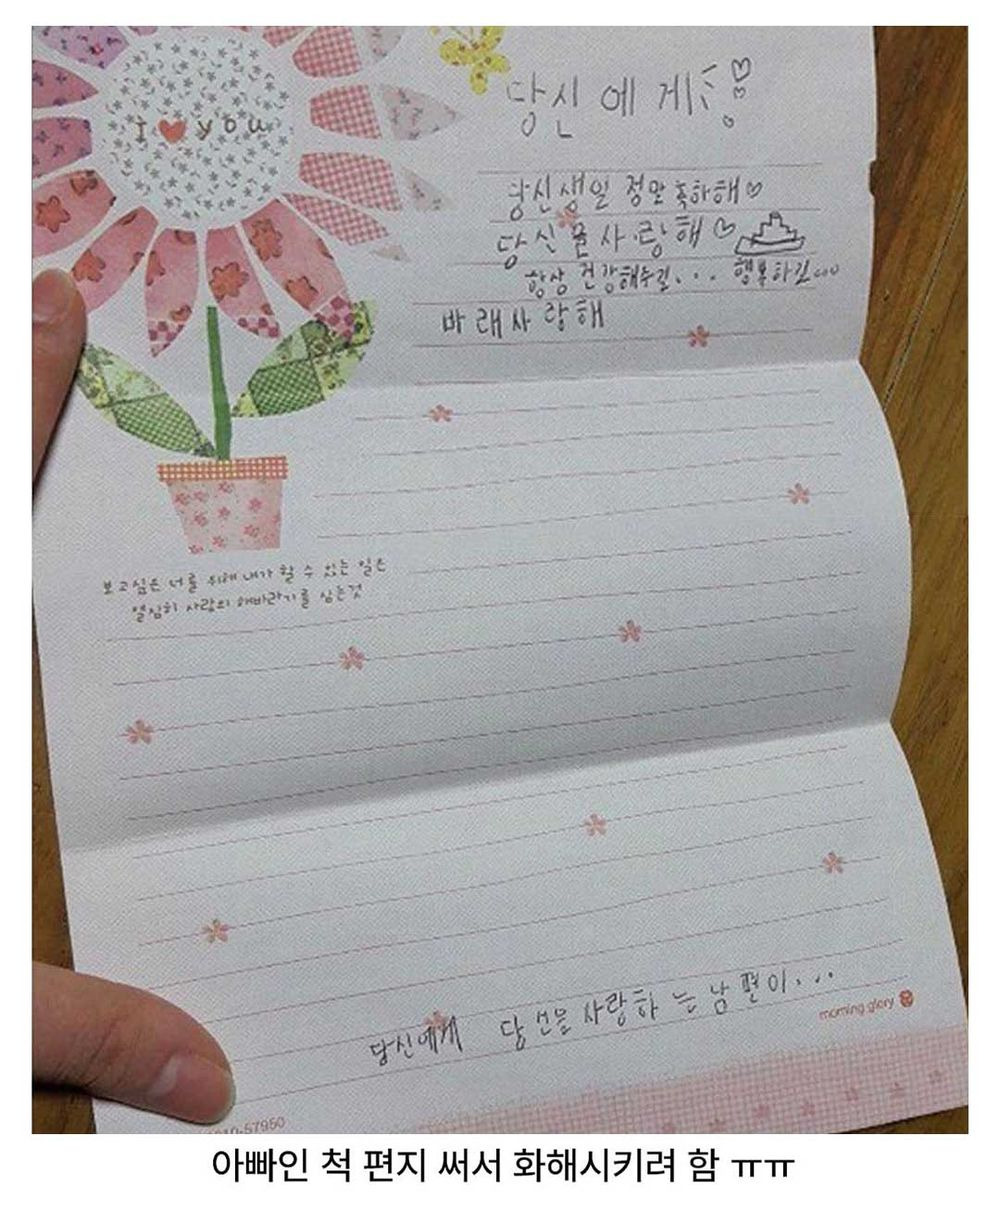 I ♥ you
당신에게
당신생일 정말 축하해♡
당신을 사랑해♡
항상 건강해수길... 행복하길...
바래사랑해
보고싶은 너를 위해 내가 할 수 있는 일은
열심히 사랑의 해바라기를 심는것
당신에게 당신을 사랑하는남편이...
morning glory
10-57950
아빠인 척 편지 써서 화해시키려 함 ㅠㅠ